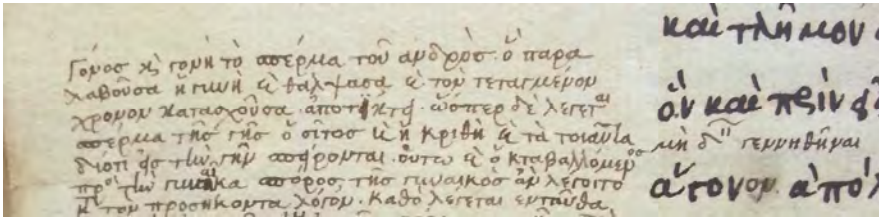 Γόνος κ̀ γονὴ τὸ σπέρμα τοῦ ἀνδρὸς· ὃ παρα
λαβοῦσα ἡ γυνὴ κ̀ θάλψασα κ̀ τὸν τεταγμένον
χρόνον κατασχοῦσα· ἀποτίκτει· ὥσπερ δὲ λέγεται
σπέρμα τῆς γῆς ὁ σῖτος κ̀ ἡ κριθὴ κ̀ τὰ τοιαῦτα
διότι εἰς τὴν γῆν σπείρονται· οὕτω κ̀ ὁ καταβαλλόμενος
πρὸς τὴν γυναῖκα σπόρος τῆς γυναικὸς ἂν λέγοιτο
κ̀ τὸν προσήκοντα λόγον· καθὸ λέγεται ἐνταῦθα
καὶ τλῆμον
ὃν καὶ πρὶν
μὴ γεννηθῆναι
ἄγονον ἀπό